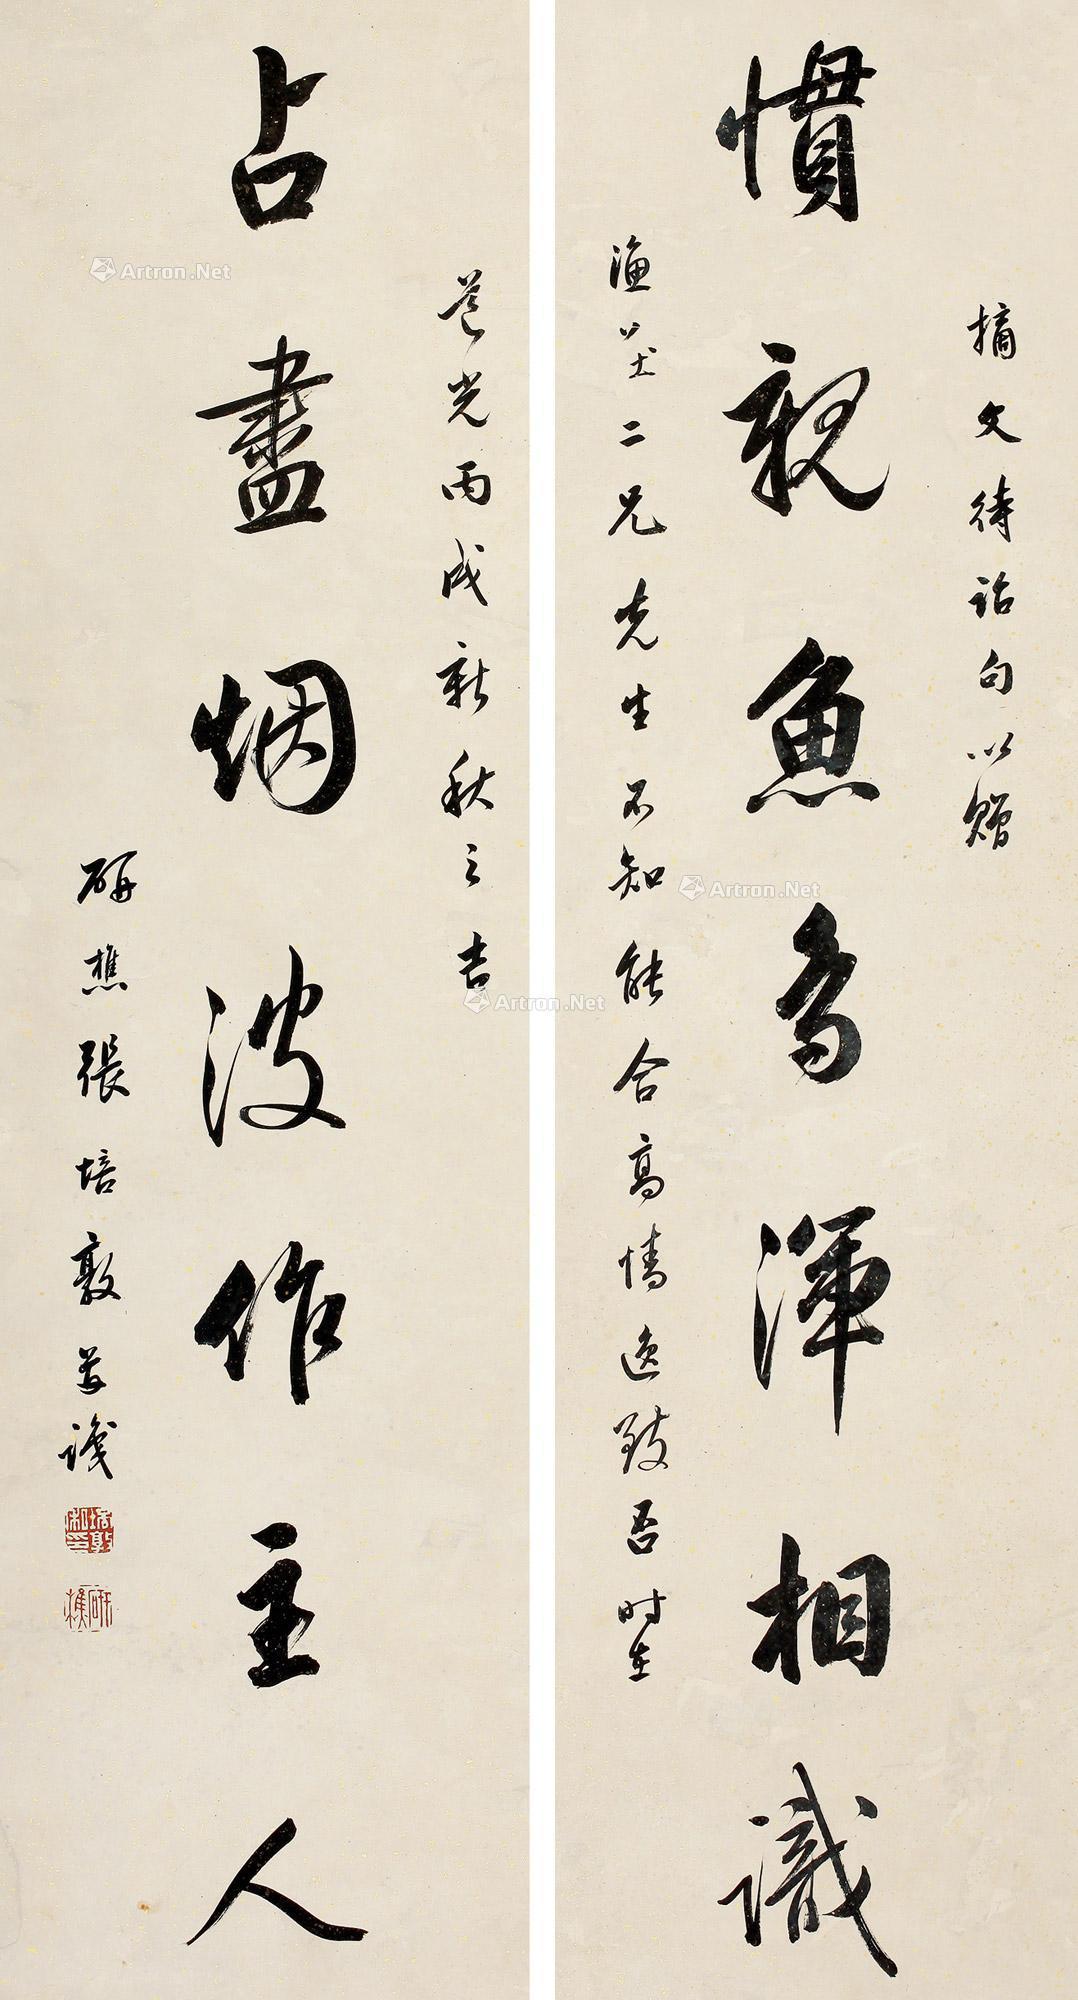 摘文待詔句以贈
慣親魚鳥渾相識
漁 二兄先生不知能合高情逸致否时在
道光丙戌新秋之吉
占盡烟波作主人
研樵張培敦并識
培敦私印
研樵
Artron.Net
Artron.Net
Artron.Net